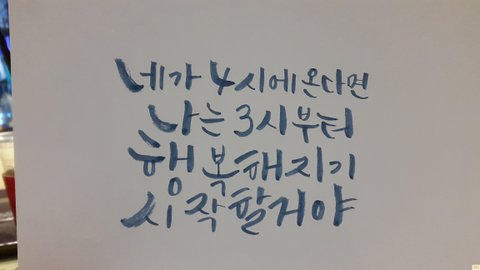 네가 4시에 온다면
나는 3시부터
행복해지기
시작할거야